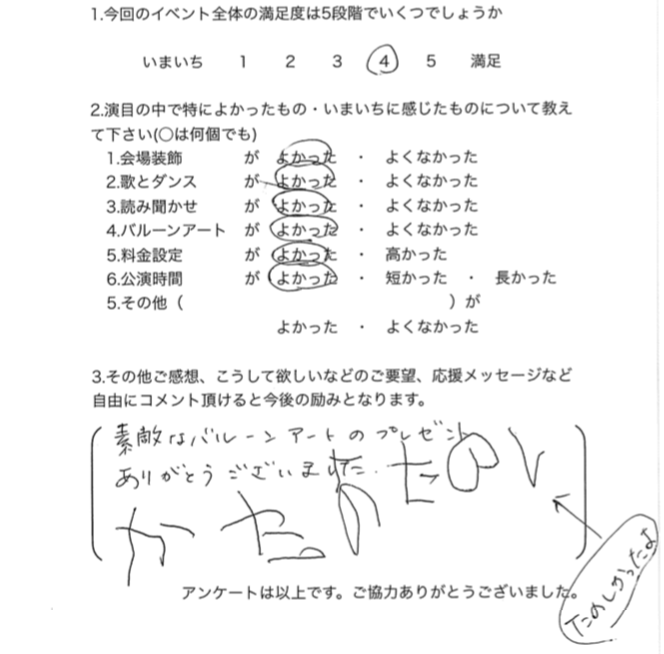 1.今回のイベント全体の満足度は5段階でいくつでしょうか
いまいち 1 2 3 4 5 満足
2.演目の中で特によかったもの・いまいちに感じたものについて教え
て下さい(○は何個でも)
1.会場装飾 が よかった ・ よくなかった
2.歌とダンス が よかった ・ よくなかった
3.読み聞かせ が よかった ・ よくなかった
4.バルーンアート が よかった ・ よくなかった
5.料金設定 が よかった ・ 高かった
6.公演時間 が よかった ・ 短かった ・ 長かった
5.その他( )が
よかった ・ よくなかった
3.その他ご感想、こうして欲しいなどのご要望、応援メッセージなど
自由にコメント頂けると今後の励みとなります。
素敵なバルーンアートのプレゼント
ありがとうございました.
たのし
かったよ
たのしかったよ
アンケートは以上です。ご協力ありがとうございました。